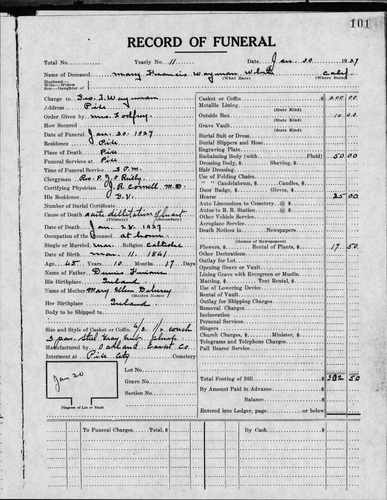 101
RECORD OF FUNERAL
Total No. Yearly No. 11 Date Jan. 30 1927
Name of Deceased Mary Francis Wayman White Calif.
(What Race) (Where Born)
Husband—
Wife—Widow
Son—Daughter of
Charge to Geo. T. Wayman
Address Pike
Order Given by Mrs. Godfrey
How Secured
Date of Funeral Jan. 30. 1927
Residence Pike
Place of Death Pike
Funeral Services at Pike
Time of Service 2 P.M.
Clergyman Rev. P. J.
Certifying Physician J. R. Cornell M.D.
His Residence
Number of Burial Certificate
Cause of Death acute dilitation heart
(Primary) (Secondary)
Date of Death Jan. 28. 1927
Occupation of the Deceased at home
Single or Married Mar. Religion Catholic
Date of Birth Mar. 11. 1861
Age 65 Years 10 Months 17 Days
Name of Father Dennis
His Birthplace Ireland
Name of Mother Mary Ellen
(Maiden Name)
Her Birthplace Ireland
Body to be Shipped to
Size and Style of Casket or Coffin 6/3 1/2 couch
Manufactured by Oakland Casket Co.
Interment at Pike City Cemetery
Lot No.
Grave No.
Section No.
Jan 30
Diagram of Lot or Vault
Casket or Coffin $ 200 00
Metallic Lining
(State Kind)
Outside Box 10 00
(State Kind)
Grave Vault
(State Kind)
Burial Suit or Dress
Burial Slippers and Hose
Engraving Plate
Embalming Body (with Fluid) 50 00
Dressing Body, $ Shaving, $
Hair Dressing
Use of Folding Chairs
" " Candelabrum, $ Candles, $
Door Badge, $ Gloves, $
Hearse 25 00
Auto Limousines to Cemetery @ $
Autos to R. R. Station @ $
Other Vehicle Service
Aeroplane Service
Death Notices in Newspapers
(Names of Newspapers)
Flowers, $ Rental of Plants, $ 17 50
Other Decorations
Outlay for Lot
Opening Grave or Vault
Lining Grave with Evergreen or Muslin
Matting, $ Tent Rental, $
Use of Lowering Device
Rental of Vault
Outlay for Shipping Charges
Removal Charges
Incineration
Personal Services
Singers
Church Charges, $ Minister, $
Telegrams and Telephone Charges
Pall Bearer Service
Total Footing of Bill $ 302 50
By Amount Paid in Advance
Balance $
Entered into Ledger, page or below
To Funeral Charges Total $ By Cash $